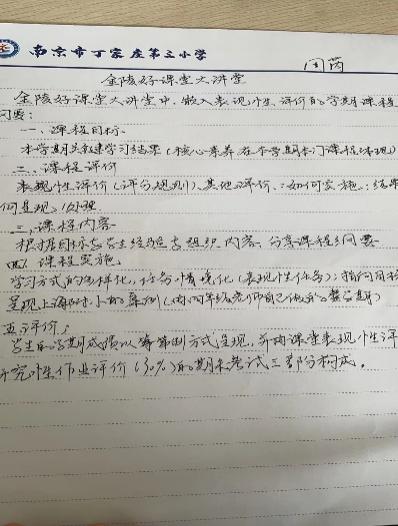 南京市丁家庄第三小学
闫芮
金陵好课堂大讲堂
金陵好课堂大讲堂中,嵌入表现性评价的学期课程
纲要:
一、课程目标
本学期关键学习结果(核心素养在本学期本门课程体现)
二、课程评价
表现性评价(评分规则)、其他评价、如何实施:结果
何呈现、处理
三、课程内容
根据目标与学生经验去组织内容,分享课程纲要
四、课程实施
学习方式的多样化,任务情境化(表现性任务);指向目标
呈现上海附小的案例
五、评价:
学生的学期成绩以等第制方式呈现,并由课堂表现性评
研究性作业评价(30%)和期末考试三部分构成。